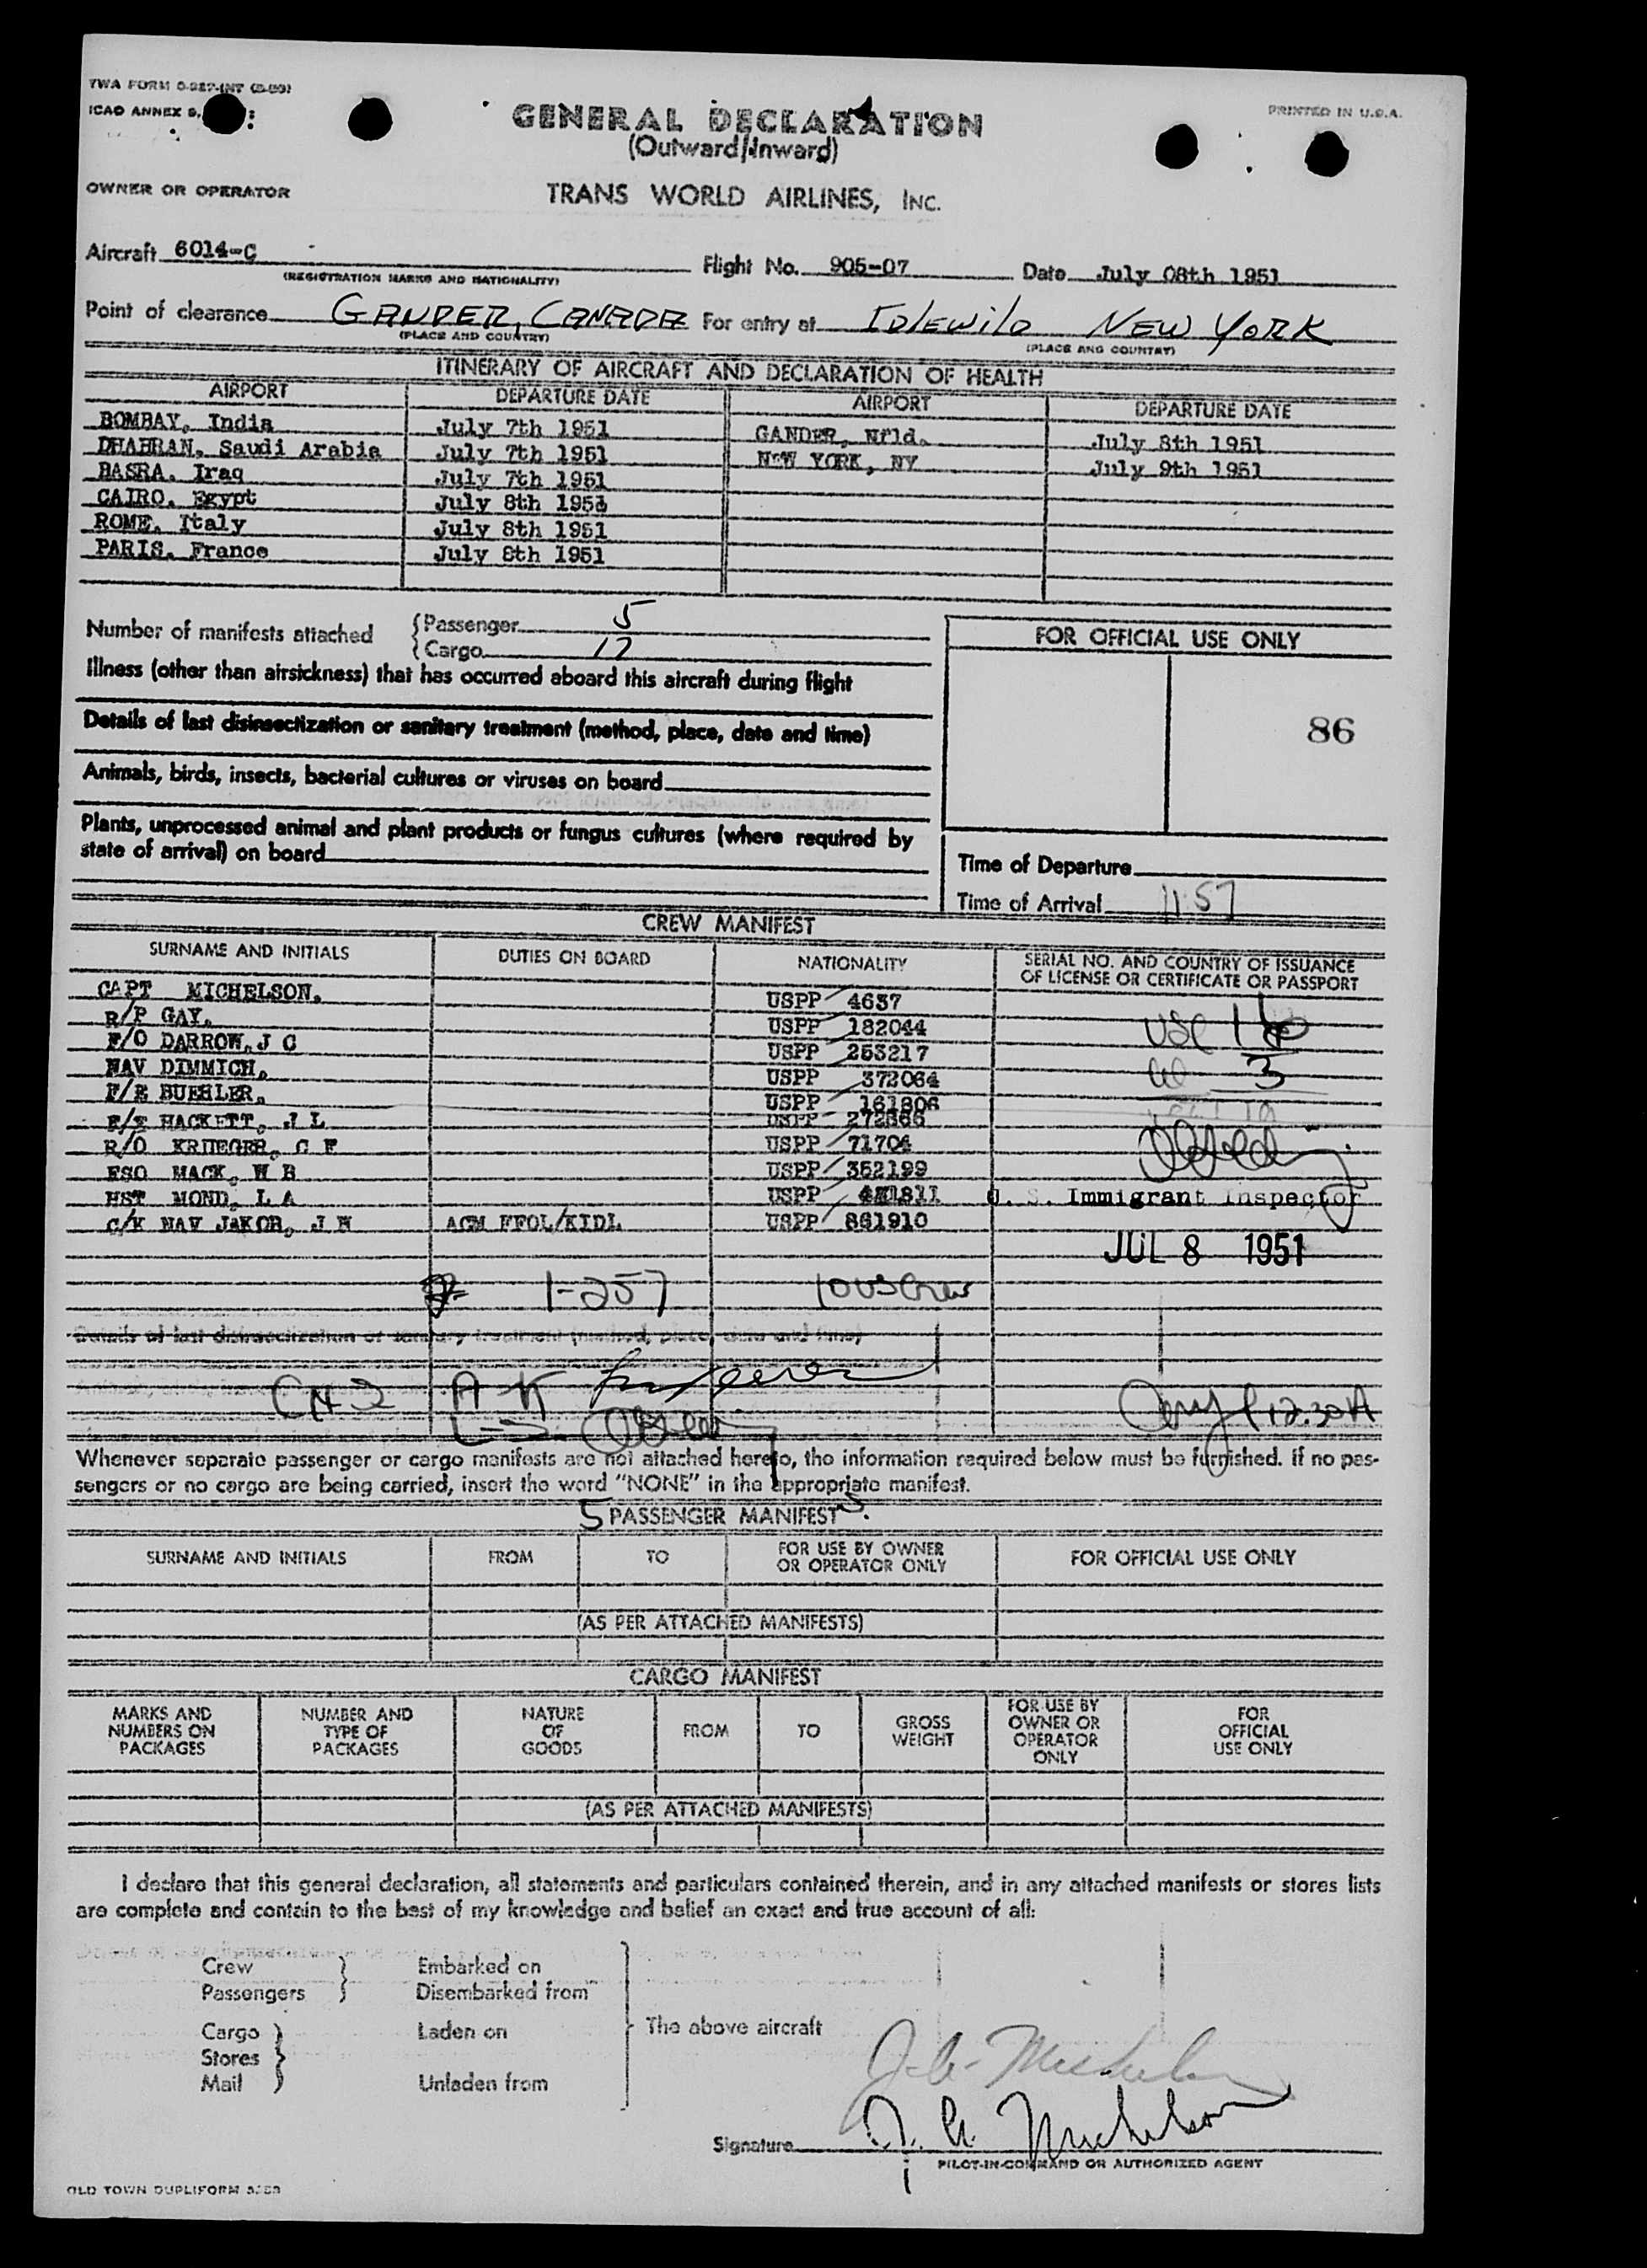 TWA FORM
ICAO ANNEX 9,
PRINTED IN U.S.A.
GENERAL DECLARATION
(Outward/Inward)
OWNER OR OPERATOR TRANS WORLD AIRLINES, INC.
Aircraft 6014-C Flight No. 905-07 Date July 08th 1951
(REGISTRATION MARKS AND NATIONALITY)
Point of clearance GANDER, CANADA For entry at IDLEWILD NEW YORK
(PLACE AND COUNTRY) (PLACE AND COUNTRY)
ITINERARY OF AIRCRAFT AND DECLARATION OF HEALTH
AIRPORT DEPARTURE DATE AIRPORT DEPARTURE DATE
BOMBAY, India July 7th 1951 GANDER, Nfld. July 8th 1951
DHAHRAN, Saudi Arabia July 7th 1951 NEW YORK, NY July 9th 1951
BASRA, Iraq July 7th 1951
CAIRO, Egypt July 8th 1951
ROME, Italy July 8th 1951
PARIS, France July 8th 1951
Number of manifests attached Passenger 5
Cargo 17
FOR OFFICIAL USE ONLY
Illness (other than airsickness) that has occurred aboard this aircraft during flight
Details of last disinsectization or sanitary treatment (method, place, date and time)
86
Animals, birds, insects, bacterial cultures or viruses on board
Plants, unprocessed animal and plant products or fungus cultures (where required by
state of arrival) on board
Time of Departure
Time of Arrival 11:57
CREW MANIFEST
SURNAME AND INITIALS DUTIES ON BOARD NATIONALITY SERIAL NO. AND COUNTRY OF ISSUANCE
OF LICENSE OR CERTIFICATE OR PASSPORT
CAPT MICHELSON. USPP 4637
R/P GAY. USPP 182044
F/O DARROW, J C USPP 253217
NAV DIMMICH. USPP 372064
3
F/E BUEHLER. USPP 161806
F/E HACKETT, J L USPP 272866
R/O KRUEGER, C F USPP 71704
FSO MACK, H B USPP 352199
HST MOND, L A USPP
U. S. Immigrant Inspector
C/K NAV JAKOB, J H ACM FFOL/KIDL USPP 861910
JUL 8 1951
1-257 10 US Crew
Details of last disinsectization or sanitary treatment (method, place, date and time)
12.30A
Whenever separate passenger or cargo manifests are not attached hereto, the information required below must be furnished. If no pas-
sengers or no cargo are being carried, insert the word "NONE" in the appropriate manifest.
5 PASSENGER MANIFESTS
SURNAME AND INITIALS FROM TO FOR USE BY OWNER
OR OPERATOR ONLY FOR OFFICIAL USE ONLY
(AS PER ATTACHED MANIFESTS)
CARGO MANIFEST
MARKS AND
NUMBERS ON
PACKAGES
NUMBER AND
TYPE OF
PACKAGES
NATURE
OF
GOODS
FROM
TO
GROSS
WEIGHT
FOR USE BY
OWNER OR
OPERATOR
ONLY
FOR
OFFICIAL
USE ONLY
(AS PER ATTACHED MANIFESTS)
I declare that this general declaration, all statements and particulars contained therein, and in any attached manifests or stores lists
are complete and contain to the best of my knowledge and belief an exact and true account of all:
Crew Embarked on
Passengers Disembarked from
Cargo Laden on The above aircraft
Stores
Mail Unladen from
Signature J. G. Michelson
PILOT-IN-COMMAND OR AUTHORIZED AGENT
OLD TOWN DUPLIFORM